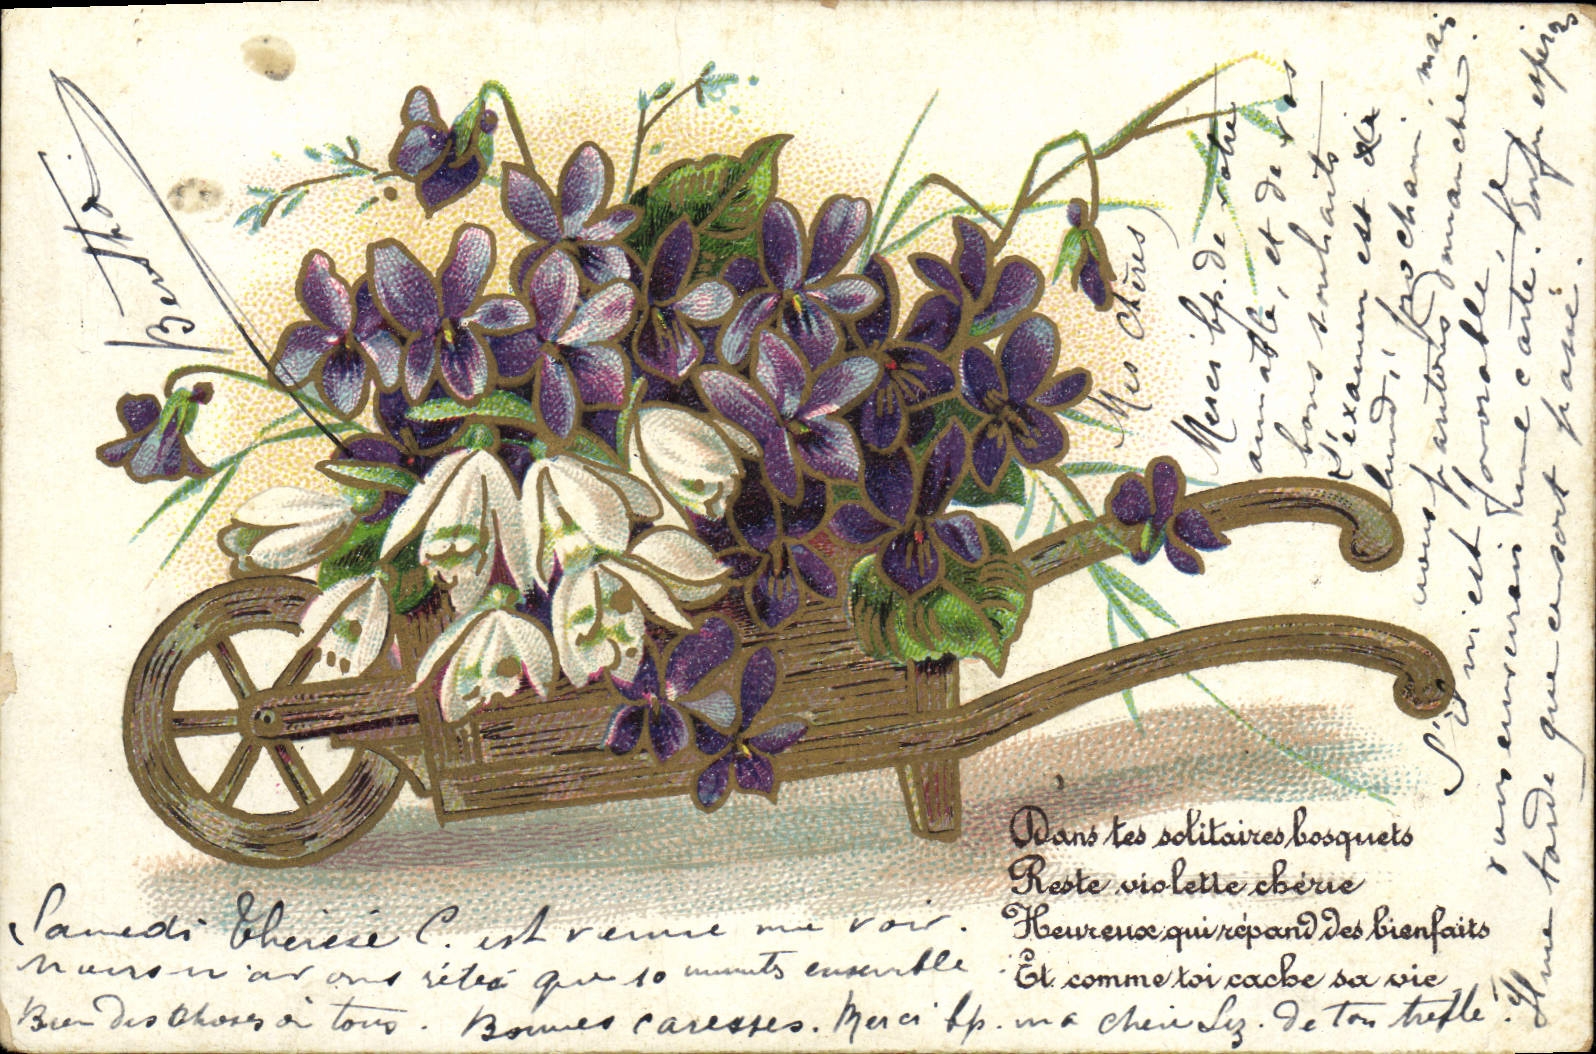 Mes Chères
Merci bp. de votre
aimable, et de vos
bons souhaits
l'examen est
lundi, prochain, mais
nous partons dimanche.
S'il m'est favorable, je
vous enverrai une carte. Enfin espérons
Il me tarde que ce sort passé.
Bertha
Dans tes solitaires bosquets
Reste violette chérie
Heureux qui répand des bienfaits
Et comme toi cache sa vie
Samedi Thérèse C. est venue me voir.
Nous n'avons que 10 minuts ensemble
Bien des choses à tous. Bonnes caresses. Merci bp. ma chère Liz. de ton trèfle!